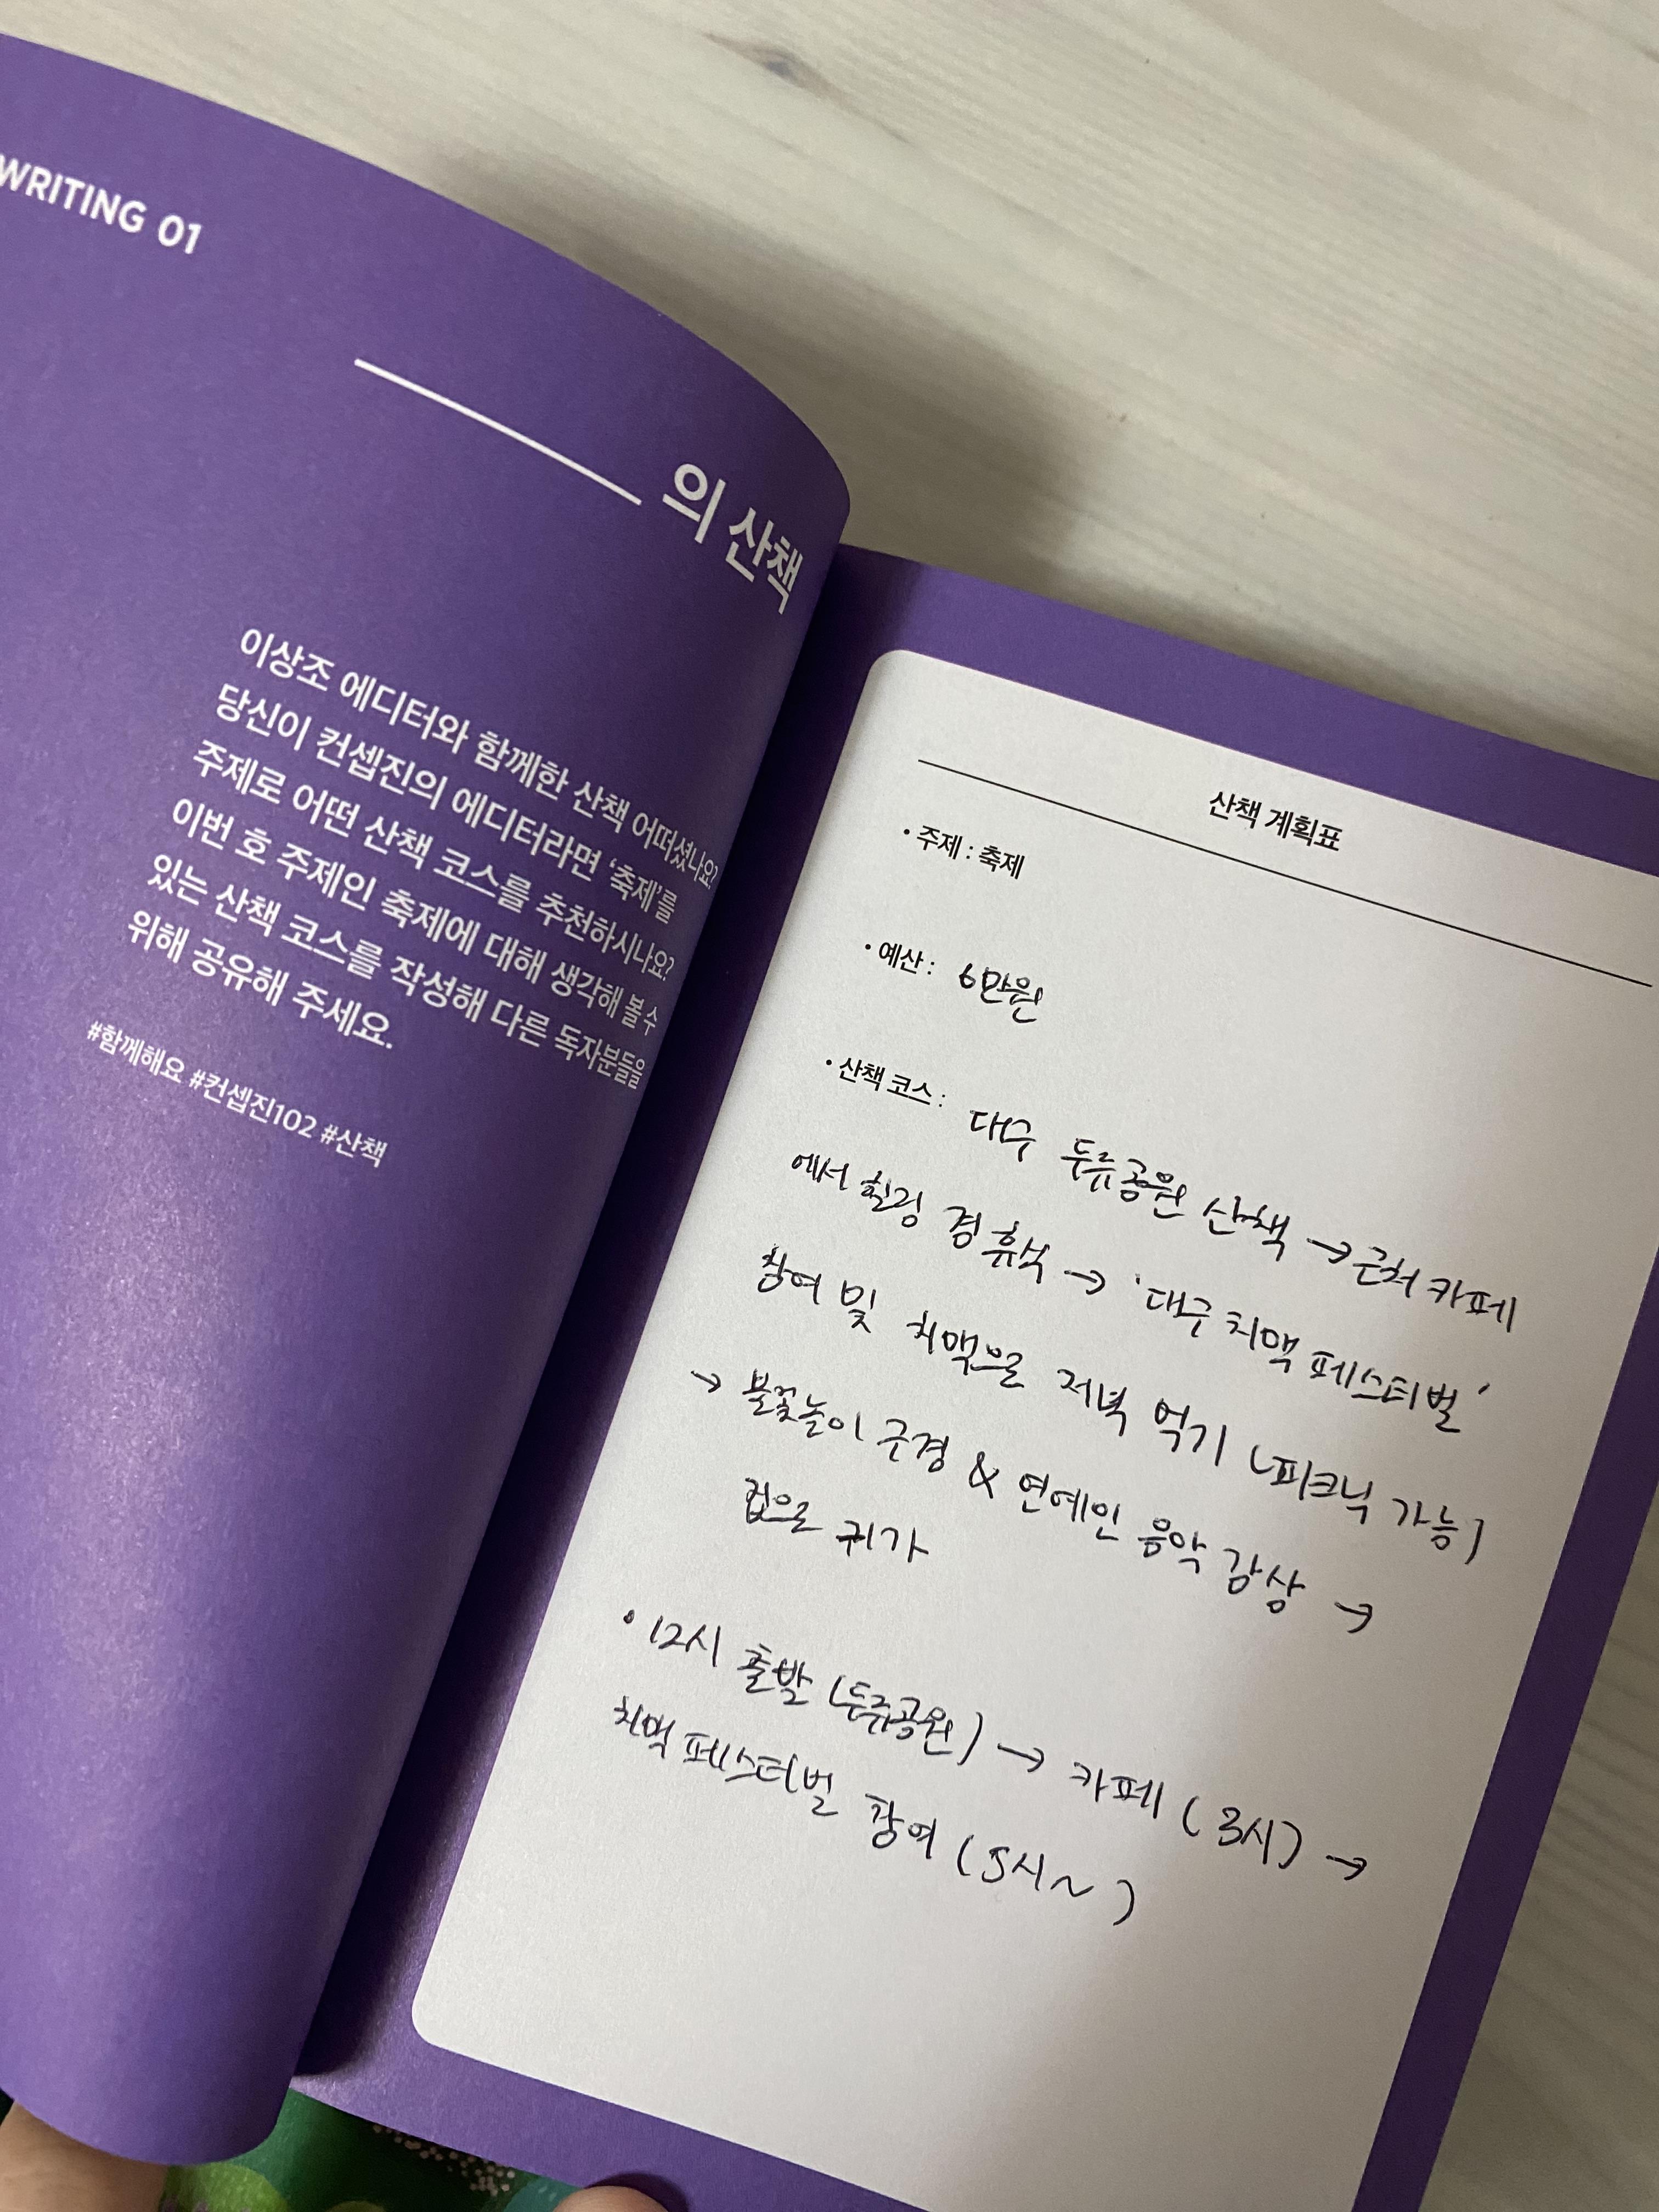 WRITING 01
의 산책
이상조 에디터와 함께한 산책 어떠셨나요?
당신이 컨셉진의 에디터라면 '축제'를
주제로 어떤 산책 코스를 추천하시나요?
이번 호 주제인 축제에 대해 생각해 볼 수
있는 산책 코스를 작성해 다른 독자분들을
위해 공유해 주세요.
#함께해요 #컨셉진102 #산책
산책 계획표
• 주제 : 축제
• 예산 : 6만원
• 산책 코스 : 대구 두류공원 산책 → 근처 카페
에서 힐링 겸 휴식 → '대구 치맥 페스티벌'
참여 및 치맥으로 저녁 먹기 (피크닉 가능)
→ 불꽃놀이 구경 & 연예인 음악 감상 →
집으로 귀가
• 12시 출발 (두류공원) → 카페 (3시) →
치맥 페스티벌 참여 (5시~)